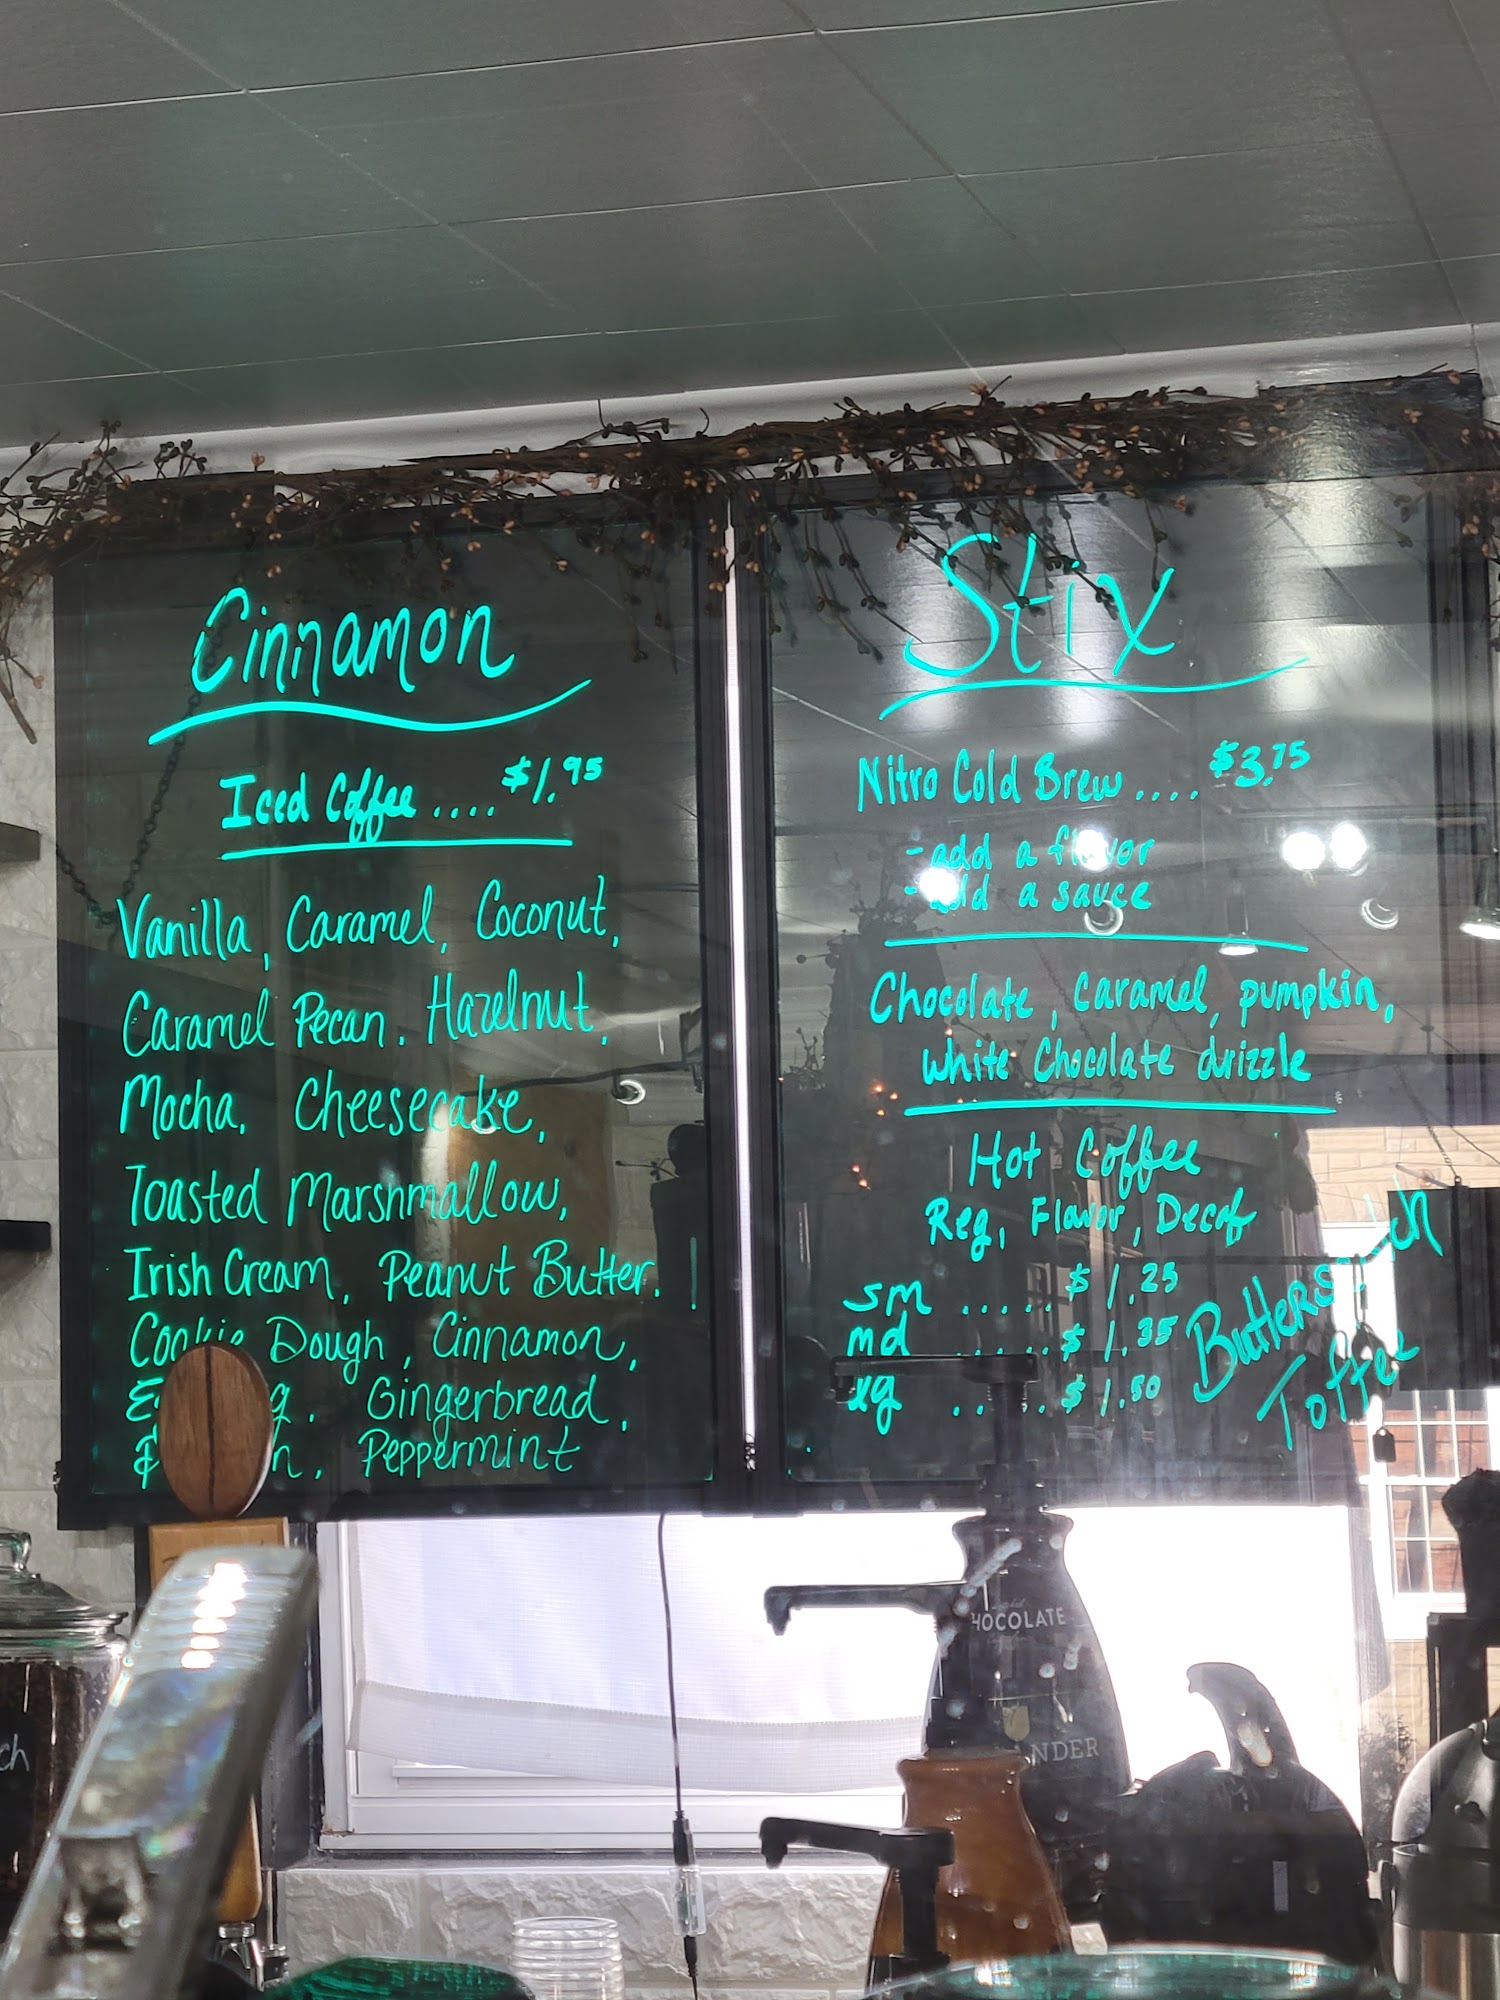 Cinnamon
Iced Coffee .... $1.95
Vanilla, Caramel, Coconut,
Caramel Pecan, Hazelnut,
Mocha, Cheesecake,
Toasted Marshmallow,
Irish Cream, Peanut Butter, !
Cookie Dough, Cinnamon,
Gingerbread,
Peppermint
Stix
Nitro Cold Brew .... $3.75
- add a flavor
- add a sauce
Chocolate, Caramel, pumpkin,
white Chocolate drizzle
Hot Coffee
Reg, Flavor, Decaf
sm ...... $1.25
md ...... $1.35
lg ...... $1.50
Butterscotch
Toffee
CHOCOLATE
NDER
ch